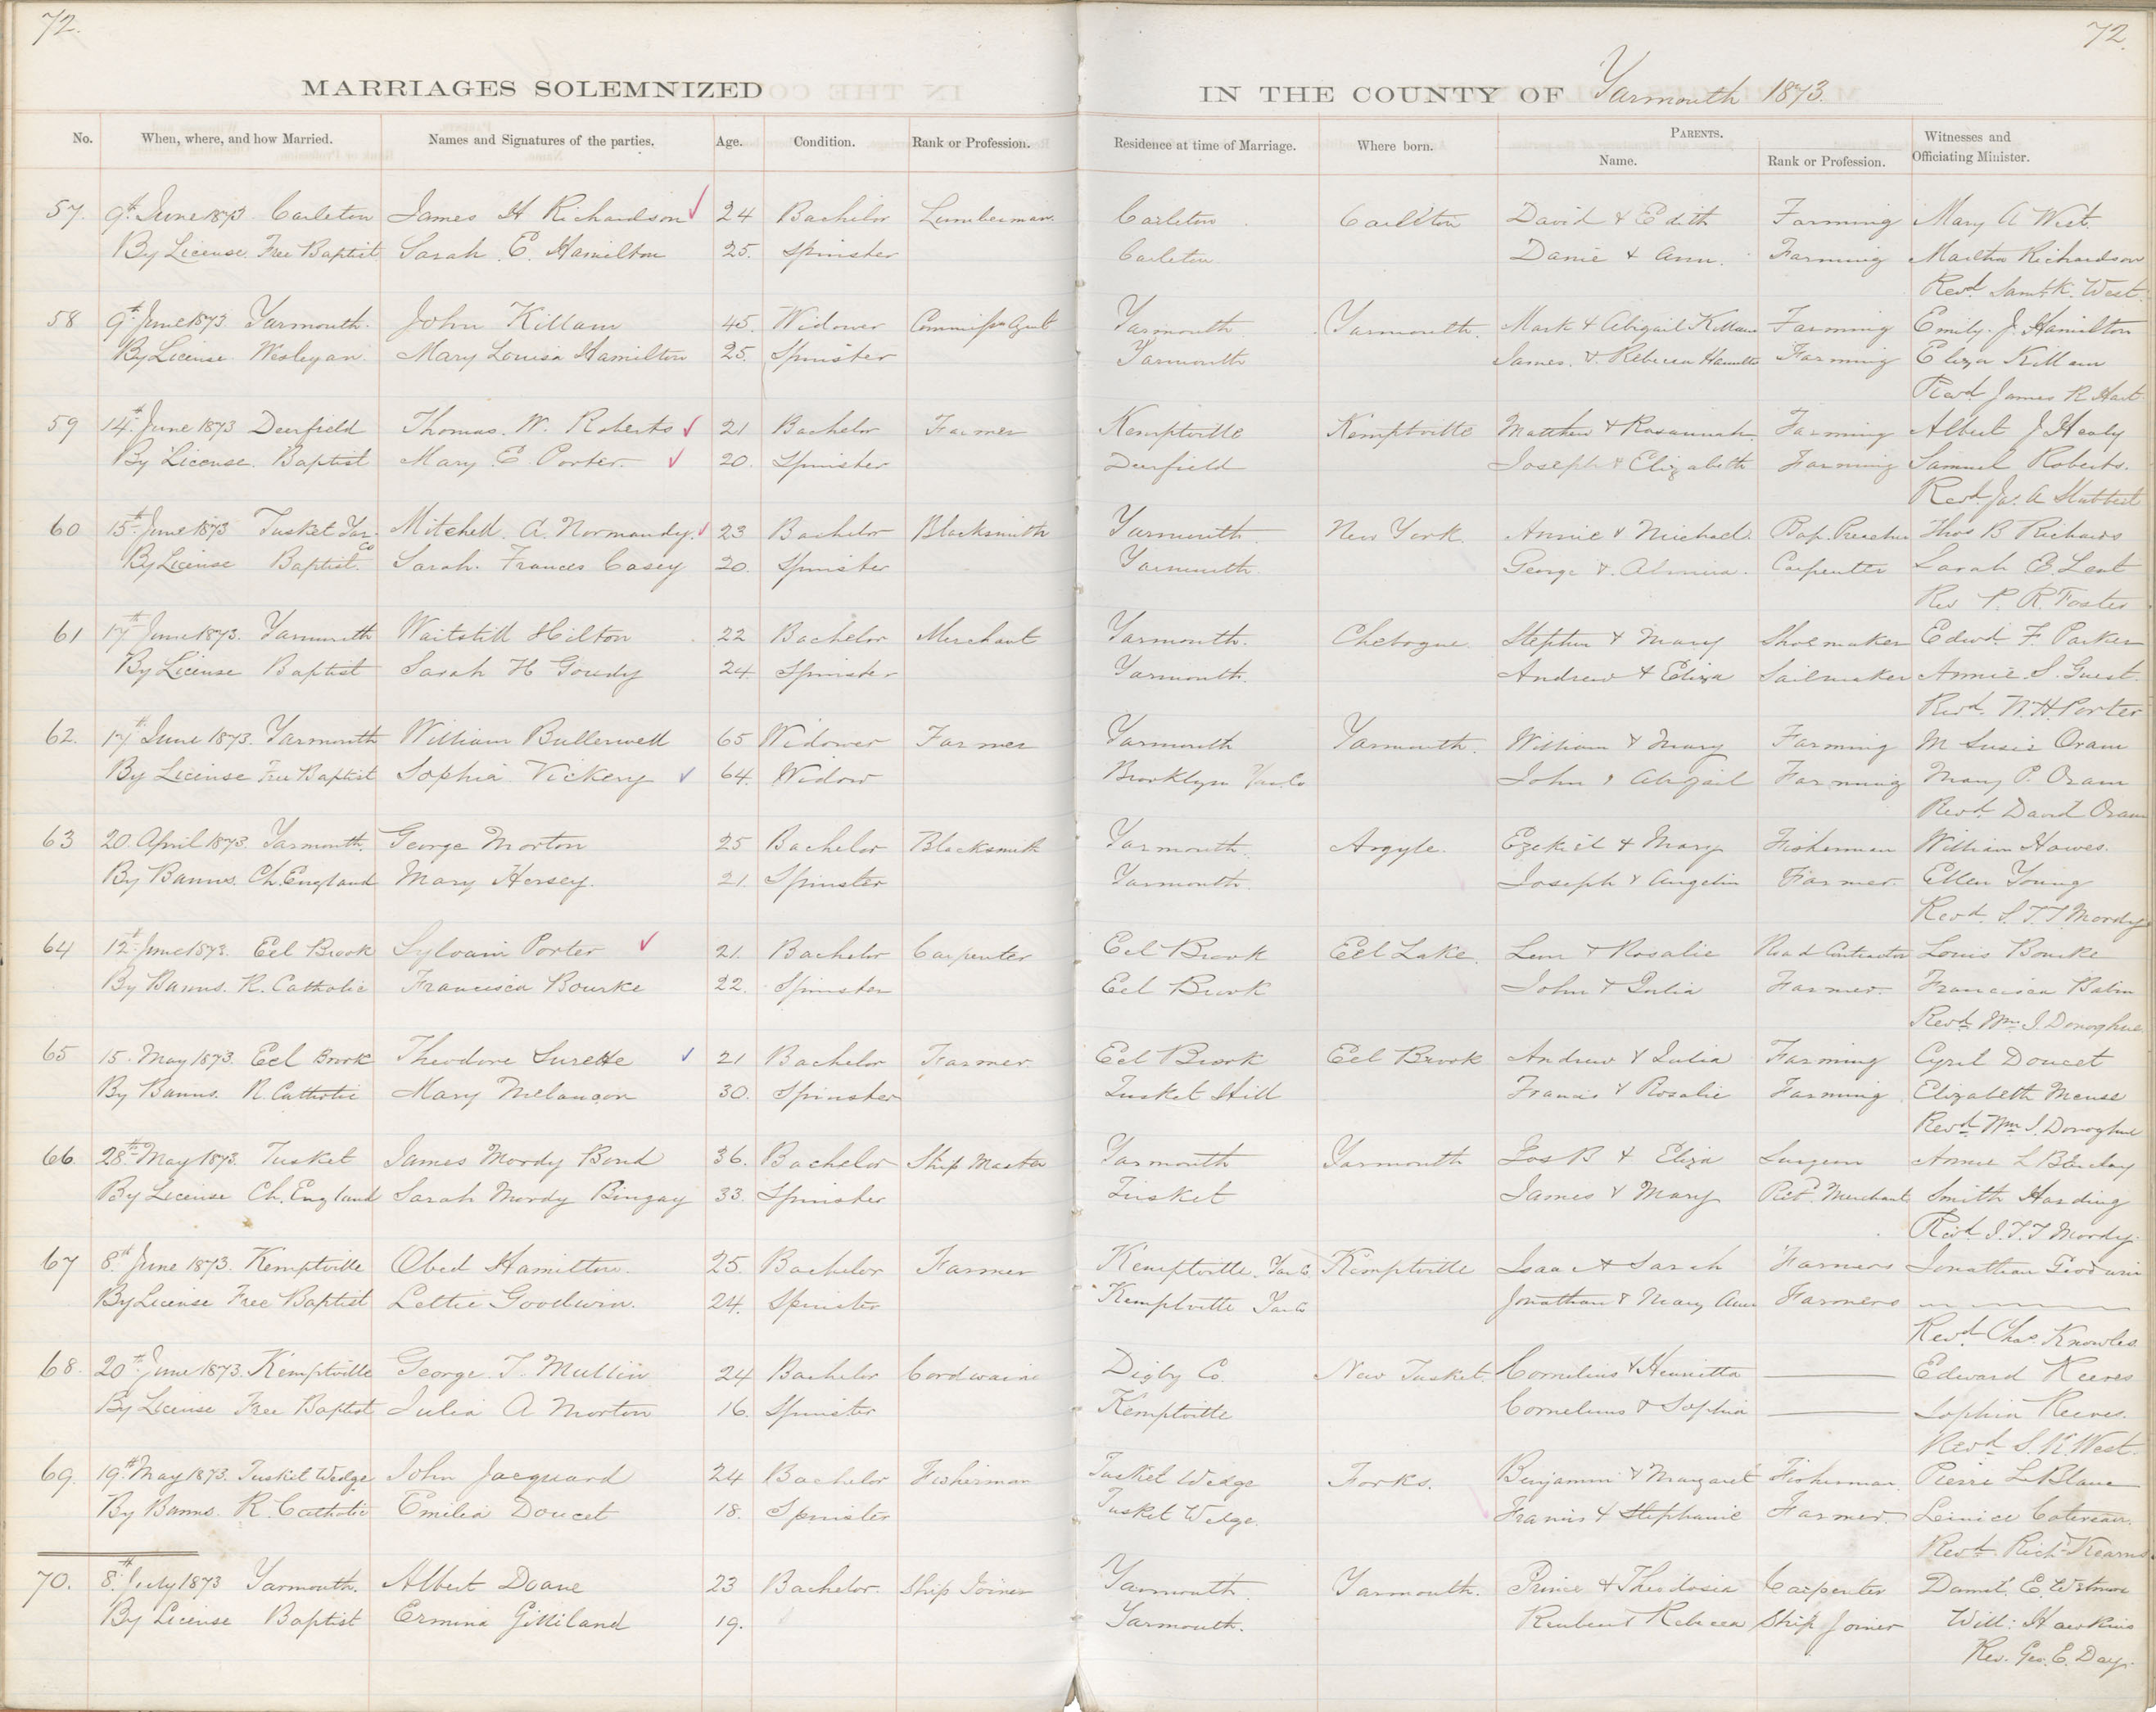 72.
72.
MARRIAGES SOLEMNIZED IN THE COUNTY OF Yarmouth 1873.
No. When, where, and how Married. Names and Signatures of the parties. Age. Condition. Rank or Profession. Residence at time of Marriage. Where born. PARENTS. Name. Rank or Profession. Witnesses and Officiating Minister.
57. 9th June 1873 Carleton James H Richardson 24 Bachelor Lumberman. Carleton Carleton David & Edith Farming Mary A West.
By License. Free Baptist Sarah E. Hamilton 25. Spinster Carleton & Ann. Farming Martha Richardson
Revd Saml K. West.
58 9th June 1873 Yarmouth. John Killam 45. Widower Yarmouth Yarmouth. Mark & Abigail Killam Farming Emily J. Hamilton
By License. Wesleyan. Mary Louisa Hamilton 25. Spinster Yarmouth James & Rebecca Farming Eliza Killam
Revd James R Hart
59 14th June 1873 Deerfield Thomas. W. Roberts 21 Bachelor Farmer Kemptville Kemptville Matthew & Rosannah Farming Albert J Healy
By License. Baptist Mary E Porter. 20. Spinster Deerfield Joseph & Elizabeth Farming Samuel Roberts.
Revd Jas. A Stubbert
60 15th June 1873 Tusket Yar. Co Mitchell. A. Normandy. 23 Bachelor Blacksmith Yarmouth New York. Annie & Michael. Bap. Preacher Thos B Richards
By License Baptist. Sarah. Frances Casey 20. Spinster Yarmouth. George & Almira. Carpenter Sarah E. Lent
Rev P. R. Foster
61 17th June 1873. Yarmouth Waitstill Hilton 22 Bachelor Merchant Yarmouth. Chebogue. Stephen & Mary Shoemaker Edwd. F. Parker
By License Baptist Sarah H Goudy 24. Spinster Yarmouth. Andrew & Eliza Sailmaker Annie. S. Guest.
Revd. W. H. Porter
62. 17th June 1873. Yarmouth William Bullerwell 65 Widower Farmer Yarmouth Yarmouth. William & Mary Farming M Susie Oram
By License Free Baptist Sophia Vickery 64. Widow Brooklyn Yar. Co John & Abigail Farming Mary P. Oram
Revd. David Oram
63 20. April 1873. Yarmouth. George Morton 25 Bachelor Blacksmith Yarmouth. Argyle. Ezekiel & Mary Fisherman William Hawes.
By Banns. Ch. England Mary Hersey. 21. Spinster Yarmouth. Joseph & Angelin Farmer. Ellen Young
Revd. J. T. T. Mordy
64 12th June 1873. Eel Brook Sylvain Porter 21. Bachelor Carpenter Eel Brook Eel Lake. & Rosalie Road Contractor Louis Bourke
By Banns. R. Catholic Francisca Bourke 22. Spinster Eel Brook John & Julia Farmer. Francisca Babin
Revd Wm J. Donoghue
65 15. May 1873. Eel Brook Theodore Surette 21 Bachelor Farmer. Eel Brook Eel Brook Andrew & Julia Farming Cyril Doucet
By Banns. R. Catholic Mary Melancon 30. Spinster Tusket Hill Francis & Rosalie Farming Elizabeth Meuse
Revd Wm J. Donoghue
66. 28th May 1873. Tusket James Mordy Bond 36. Bachelor Ship Master Yarmouth Yarmouth Jos B & Eliza Surgeon Annie L Barclay
By License Ch. England Sarah Mordy Bingay 33. Spinster Tusket James & Mary Retd. Merchant Smith Harding
Revd. J. T. T Mordy.
67 8th June 1873. Kemptville Obed Hamilton. 25. Bachelor Farmer Kemptville. Yar Co Kemptville Isaac & Sarah Farmers Jonathan Goodwin
By License Free Baptist Lettie Goodwin. 24. Spinster Kemptville Yar Co Jonathan & Mary Ann Farmers
Revd. Chas Knowles
68. 20th June 1873. Kemptville George. T. Mullin 24 Bachelor Digby Co. New Tusket. Cornelius & Henrietta Edward Reeves
By License Free Baptist Julia A Morton 16. Spinster Kemptville Cornelius & Sophia Sophia Reeves.
Revd. S. K. West.
69. 19th May 1873. Tusket Wedge John Jacquard 24 Bachelor Fisherman Tusket Wedge Forks. Benjamin & Margaret Fisherman. Pierre LeBlanc
By Banns. R. Catholic Emilia Doucet 18. Spinster Tusket Wedge. Francis & Stephanie Farmer.
Revd. Richd Kearns.
70. 8th July 1873 Yarmouth. Albert Doane 23 Bachelor. Ship Joiner Yarmouth. Yarmouth. Prince & Theodosia Carpenter Danl. E. Wetmore
By License Baptist Ermina Gilliland 19. Yarmouth. Reuben & Rebecca Ship Joiner Will: Hawkins
Rev. Geo. E. Day.